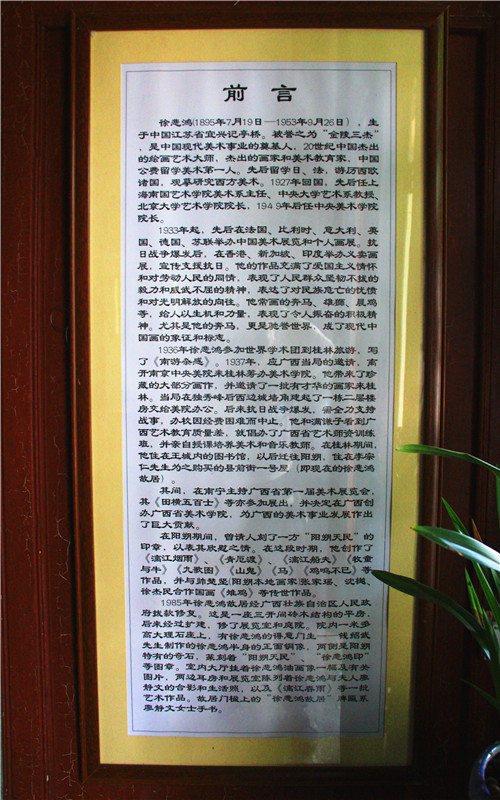 前言
徐悲鸿(1895年7月19日—1953年9月26日)，生
于中国江苏省宜兴记亭桥。被誉之为“金陵三杰”
，是中国现代美术事业的奠基人，20世纪中国杰出
的绘画艺术大师，杰出的画家和美术教育家，中国
公费留学美术第一人。先后留学日、法，游历西欧
诸国，观摩研究西方美术。1927年回国，先后任上
海南国艺术学院美术系主任、中央大学艺术系教授、
北京大学艺术学院院长，1949年后任中央美术学院
院长。
1933年起，先后在法国、比利时、意大利、英
国、德国、苏联举办中国美术展览和个人画展。抗
日战争爆发后，在香港、新加坡、印度举办义卖画
展，宣传支援抗日。他的作品充满了爱国主义情怀
和对劳动人民的同情，表现了人民群众坚韧不拔的
毅力和威武不屈的精神，表达了对民族危亡的忧愤
和对光明解放的向往。他常画的奔马、雄狮、晨鸡
等，给人以生机和力量，表现了令人振奋的积极精
神。尤其是他的奔马，更是驰誉世界，成了现代中
国画的象征和标志。
1936年徐悲鸿参加世界学术团到桂林旅游，写
了《南游杂感》。1937年，应广西当局的邀请，离
开南京中央美院来桂林筹办美术学院。他带来了珍
藏的大部分画作，并邀请了一批有才华的画家来桂
林。当局在独秀峰后西边城墙角建起了一栋二层楼
房交给美院办公。后来抗日战争爆发，需全力支持
战事，办校因经费困难而中止。他和满谦子看到广
西艺术教育质量差，就倡办了广西省艺术师资训练
班，并亲自授课培养美术和音乐教师。在桂林期间，
他住在王城内的图书馆，以后迁往阳朔，住在李宗
仁先生为之购买的县前街一号屋（即现在的徐悲鸿
故居）。
其间，在南宁主持广西省第一届美术展览会，
其《田横五百士》等亦参加展出，并决定在广西创
办广西省美术学院，为广西的美术事业发展作出
了巨大贡献。
在阳朔期间，曾请人刻了一方“阳朔天民”的
印章，以表其欣慰之情。在这段时期，他创作了
《漓江烟雨》、《青厄渡》、《漓江船夫》《牧童
与牛》《九歌图》《山鬼》《马》《鸡鸣不已》等
作品，并与帅楚坚(阳朔本地画家)张家瑶、沈樾、
徐杰民合作国画《雉鸡》等传世作品。
1985年徐悲鸿故居经广西壮族自治区人民政
府拨款修复。这是一座三开间砖木结构的平房，
后来经过扩建，修了展览室和庭院。院内一米多
高大理石座上，有徐悲鸿的得意门生——钱绍武
先生制作的徐悲鸿半身的正面铜像，两侧是阳朔
特有的奇石，篆刻着“阳朔天民”、“徐悲鸿印”
等图章。室内大厅挂着徐悲鸿油画像一幅及有关
图片，两边耳房和展览室陈列着徐悲鸿与夫人廖
静文的合影和生活照，以及《漓江春雨》等一批
艺术作品。故居门楣上的“徐悲鸿故居”牌匾系
廖静文女士手书。